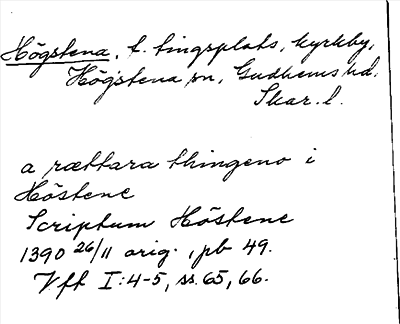 Högstena, t. tingsplats, kyrkby,
Högstena sn, Gudhems hd.
Skar. l.
a rættara thingeno i
Höstene
Scriptum Höstene
1390 26/11 orig., pb 49.
Vft I:4-5, ss. 65, 66.